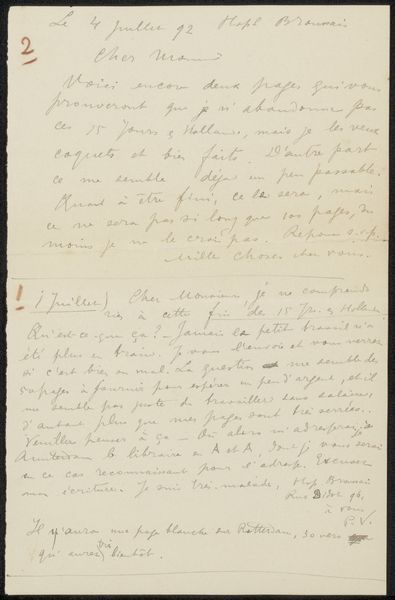 Le 4 juillet 92 Hopl Broussais
2
Cher Monsieur
Voici encore deux pages qui vous
prouveront que je n'abandonne pas
ces 15 Jours en Hollande, mais je les veux
coquets et bien faits. D'autre part
ce me semble déjà un peu passable.
Quant à être fini, ce le sera, mais
ce ne sera pas si long que 100 pages, du
moins je ne le crois pas. Réponse s.v.p.
Mille choses chez vous.
1
1 Juillet) Cher Monsieur, je ne comprends
rien à cette fin de 15 Jrs en Hollande.
Qu'est-ce que ça? - Jamais le petit travail n'a
été plus en train. Je vous l'envoie et vous verrez
si c'est bien ou mal. La question me semble de
50 pages à fournir pour espérer un peu d'argent, et il
me semble pas juste de travailler sans salaires,
d'autant plus que mes pages sont très serrées..
Veuillez penser à ça - Où alors m'adresserai-je
Amsterdam le libraire en A et A, dont je vous serai
en ce cas reconnaissant pour l'adresse. Excusez
mon écriture. Je suis très malade, Hop. Broussais
Rue Didot 96,
à vous
P.V.
Il y aura une page blanche sur Rotterdam, 30 vers
qu'aurez très bientôt.